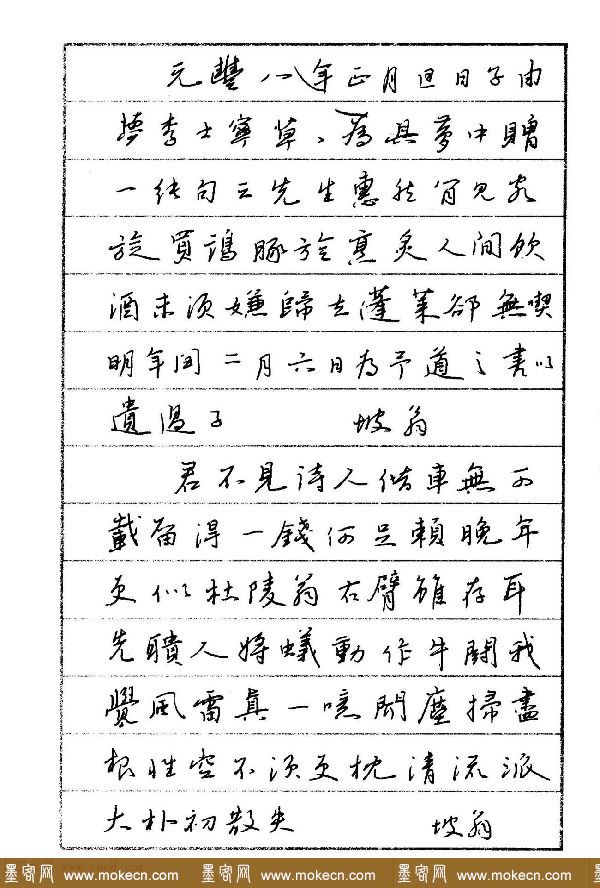 元豐八年正月旦日子由
夢李士寧草、為具夢中贈
一絕句云先生惠然肯見客
旋買鷄豚旋烹炙人間飲
酒未須嫌歸去蓬萊卻無喫
明年閏二月六日為予道之書以
遺過子 坡翁
君不見詩人借車無可
載留得一錢何足賴晚年
更似杜陵翁右臂雖存耳
先聵人將蟻動作牛鬭我
覺風雷真一噫聞塵掃盡
根性空不須更枕清流派
大朴初散失 坡翁
墨客网 www.mokecn.com 墨客网 www.mokecn.com 墨客网 www.mokecn.com